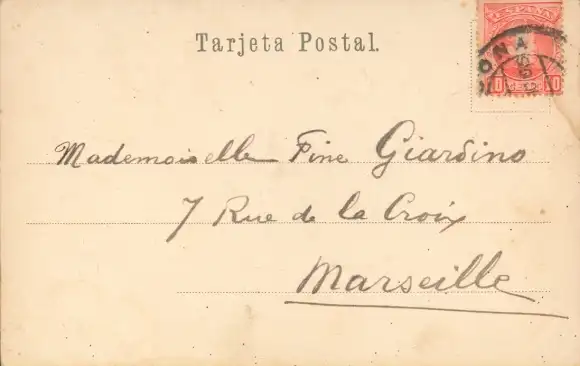 Tarjeta Postal.
ESPAÑA
Mademoiselle Fine Giardino
7 Rue de la Croix
Marseille